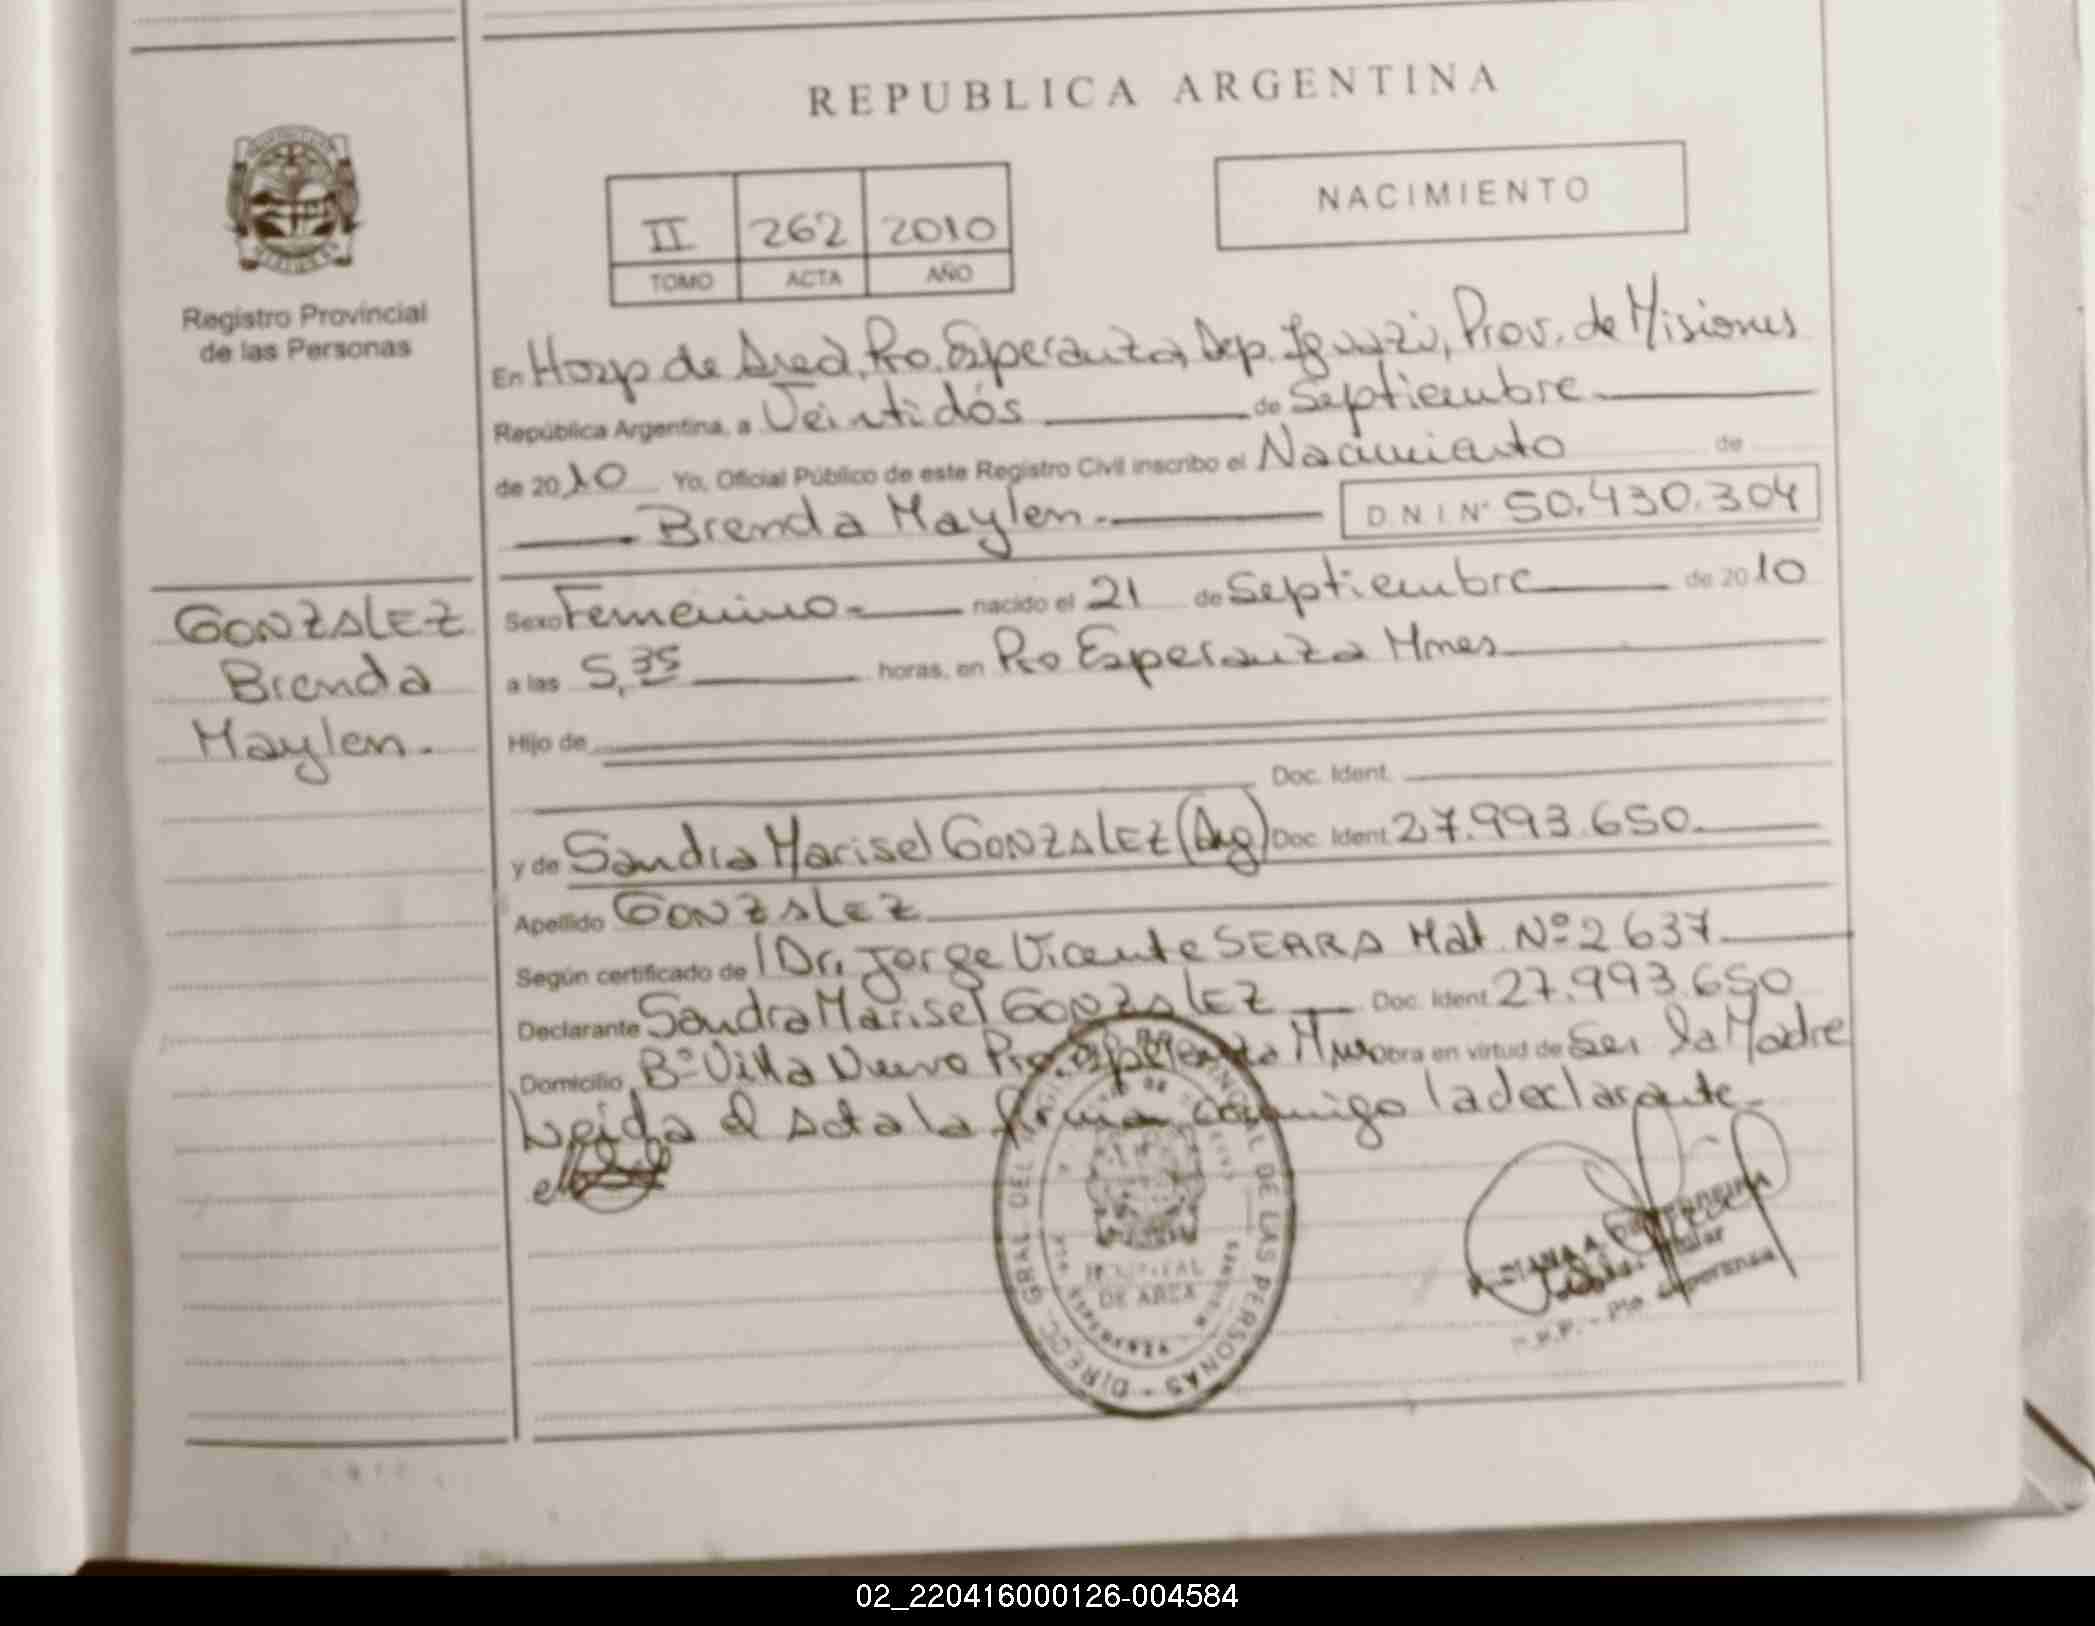 REPUBLICA ARGENTINA
NACIMIENTO
II 262 2010
TOMO ACTA AÑO
Registro Provincial
de las Personas
En Hosp de Area, Pto. Esperanza, Dep. Iguazú, Prov. de Misiones
República Argentina, a Veintidós de Septiembre
de 2010 Yo, Oficial Público de este Registro Civil inscribo el Nacimiento de
Brenda Maylen.- D N I Nº 50.430.304
GONZALEZ
Brenda
Maylen.
Sexo Femenino.- nacido el 21 de Septiembre de 2010
a las 5,35 horas, en Pto Esperanza Mnes
Hijo de
Doc. Ident.
y de Sandra Marisel GONZALEZ (Arg) Doc. Ident. 27.993.650.
Apellido GONZALEZ
Según certificado de Dr. Jorge Vicente SEARA Mat. Nº 2637
Declarante Sandra Marisel GONZALEZ Doc. Ident. 27.993.650
Domicilio Bº Villa Nueva Pto. Esperanza Mnes Obra en virtud de Ser la Madre
Leida el Acta la firma conmigo la declarante.-
DIRECC. GRAL DEL REGISTRO PROVINCIAL DE LAS PERSONAS
HOSPITAL
DE AREA
PTO. ESPERANZA
Pto Esperanza
02_220416000126-004584